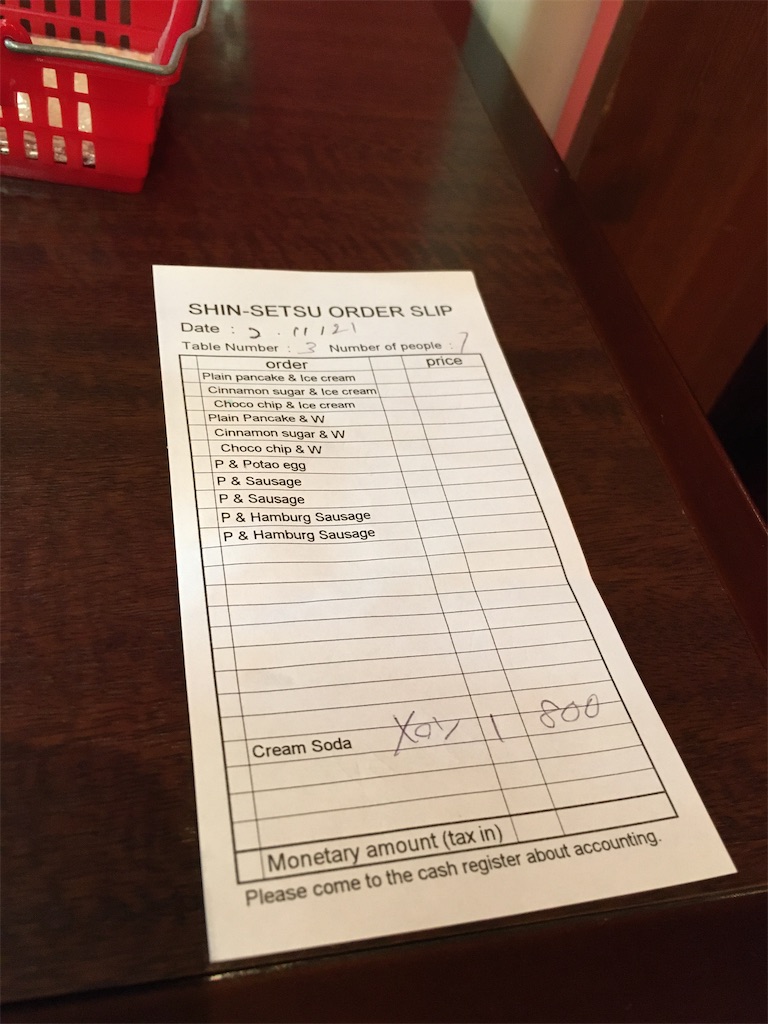 SHIN-SETSU ORDER SLIP
Date :
Table Number : 3 Number of people :
order price
Plain pancake & Ice cream
Cinnamon sugar & Ice cream
Choco chip & Ice cream
Plain Pancake & W
Cinnamon sugar & W
Choco chip & W
P & Potao egg
P & Sausage
P & Sausage
P & Hamburg Sausage
P & Hamburg Sausage
Cream Soda 1 800
Monetary amount (tax in)
Please come to the cash register about accounting.